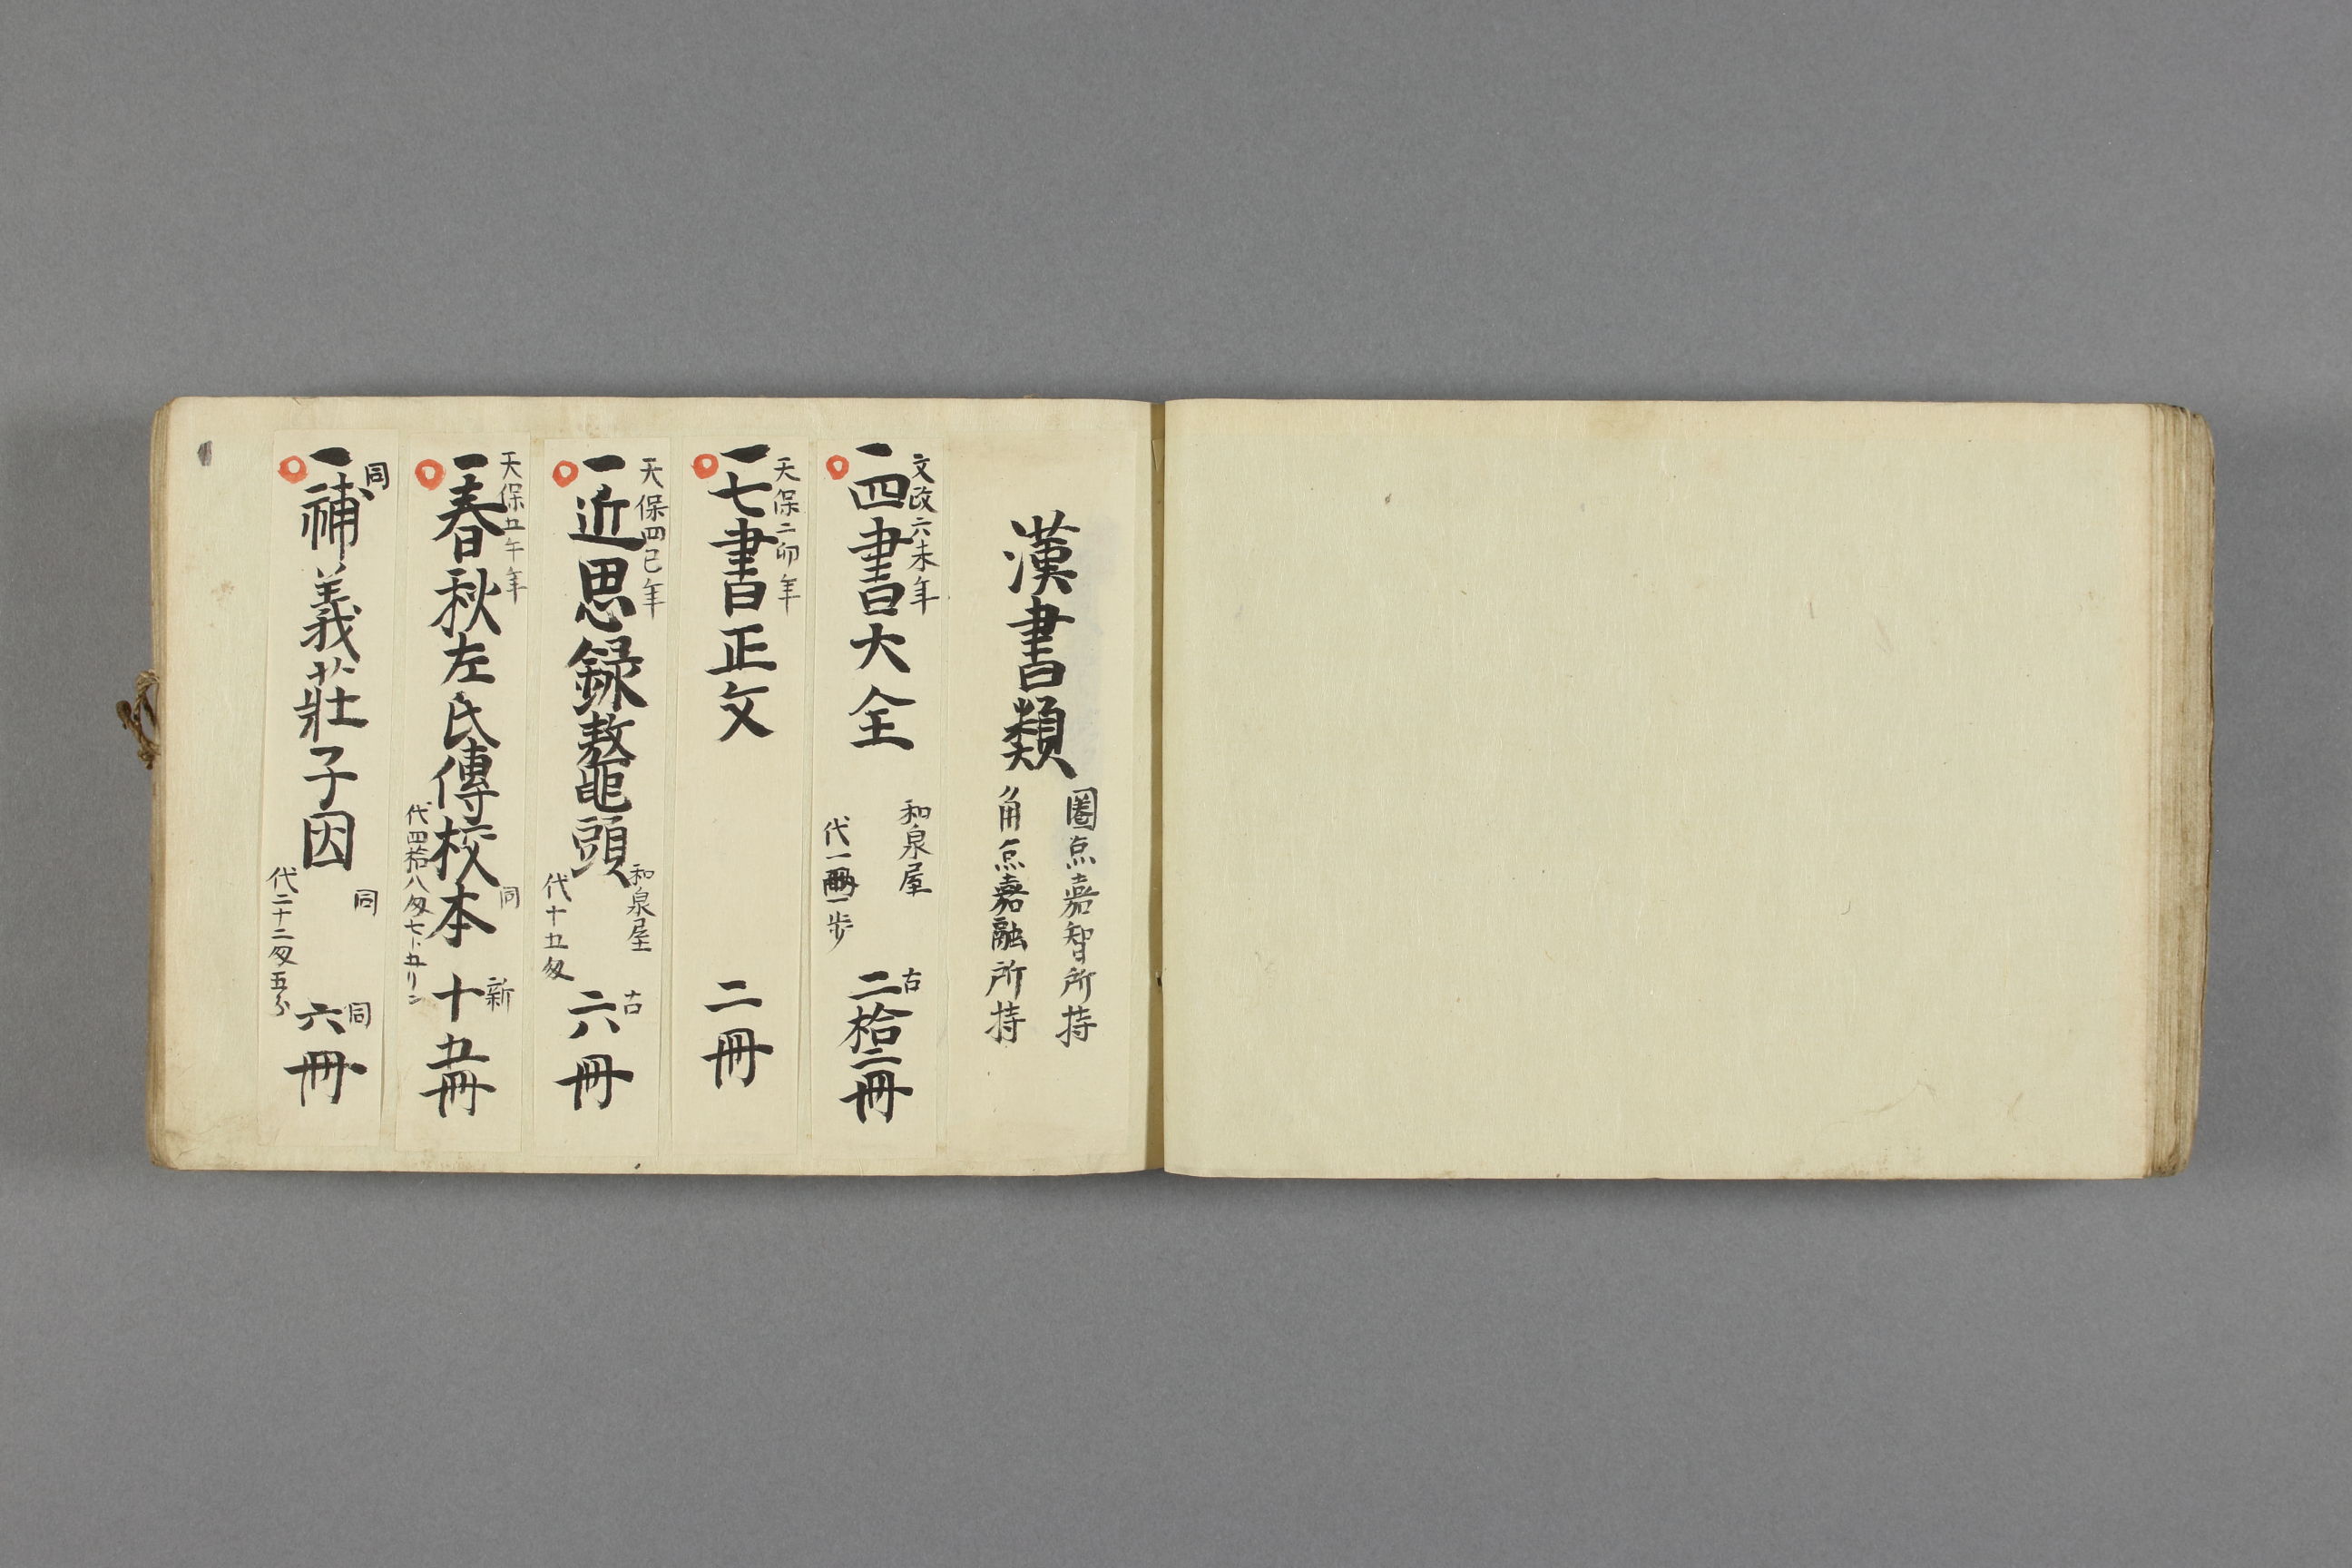 漢書類
圏点嘉智所持
角点嘉融所持
文政六未年
一四書大全
和泉屋
代一歩
古
二拾二冊
天保二卯年
一七書正文
二冊
天保四巳年
一近思録鼇頭
和泉屋
代十五匁
古
六冊
天保五午年
一春秋左氏傳校本
同
代四拾八匁七卜五リン
新
十五冊
同
一補義莊子因
同
代二十二匁五分
同
六冊